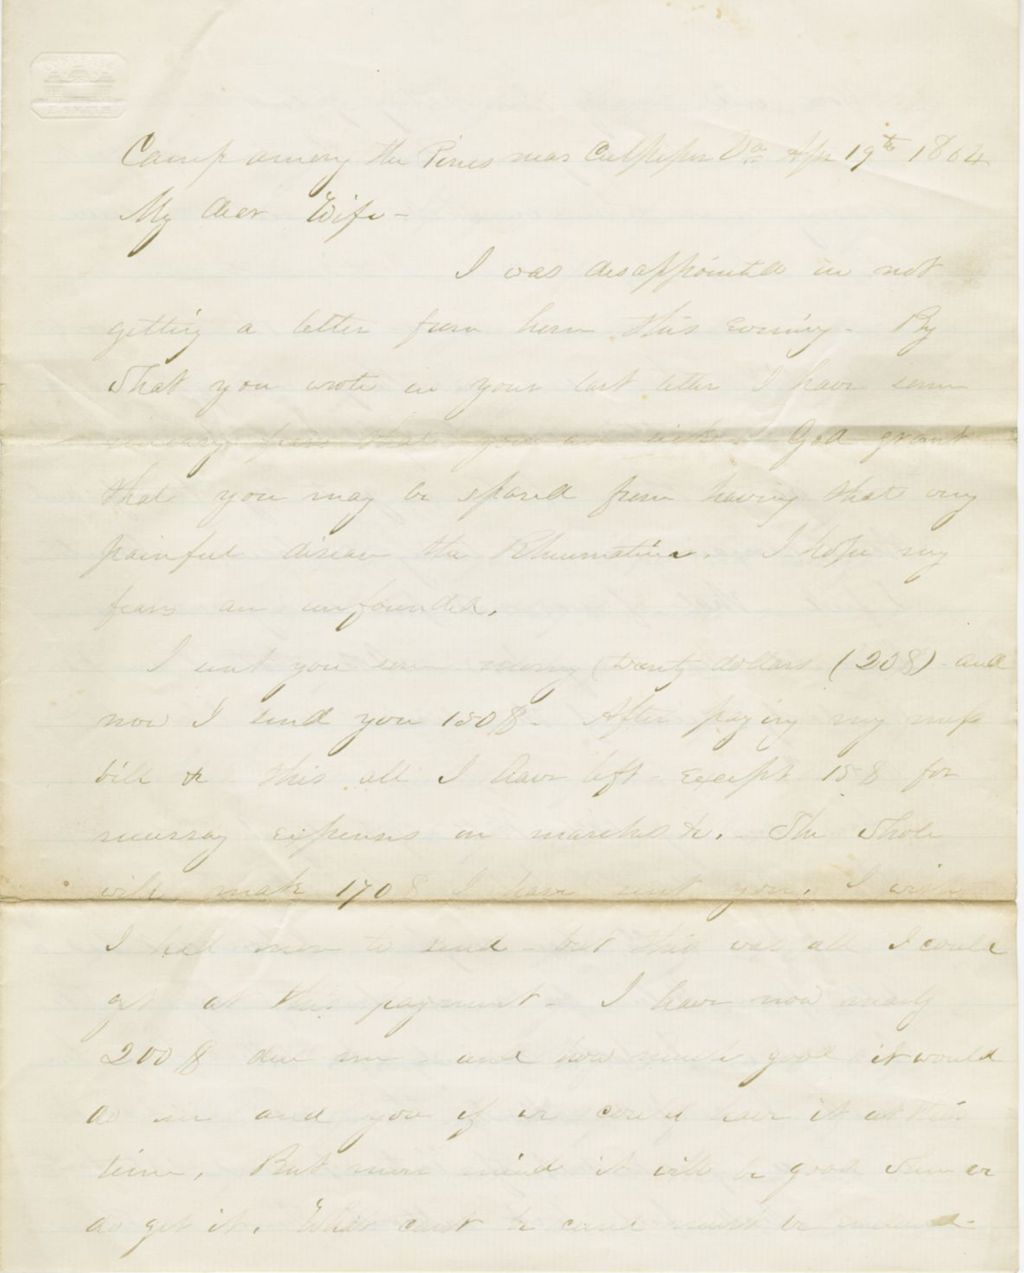 Camp among the Pines near Culpeper Va Apr 19th 1864
My dear Wife -
I was disappointed in not
getting a letter from home this evening - By
What you wrote in your last letter I have some
fears that you are sick - God grant
that you may be spared from having that very
painful disease the Rheumatism. I hope my
fears are unfounded.
I sent you some money (twenty dollars (20$) and
now I send you 150$ - After paying my mess
bill & this all I have left - except 15$ for
necessary expenses on marches &c. The Whole
will make 170$ I have sent you. I wish
I had more to send - but this was all I could
get at this payment - I have now nearly
200$ due me - and how much good it would
do me and you if we could have it at this
time. But never mind it will be good when we
do get it. What cant be cured must be endured -